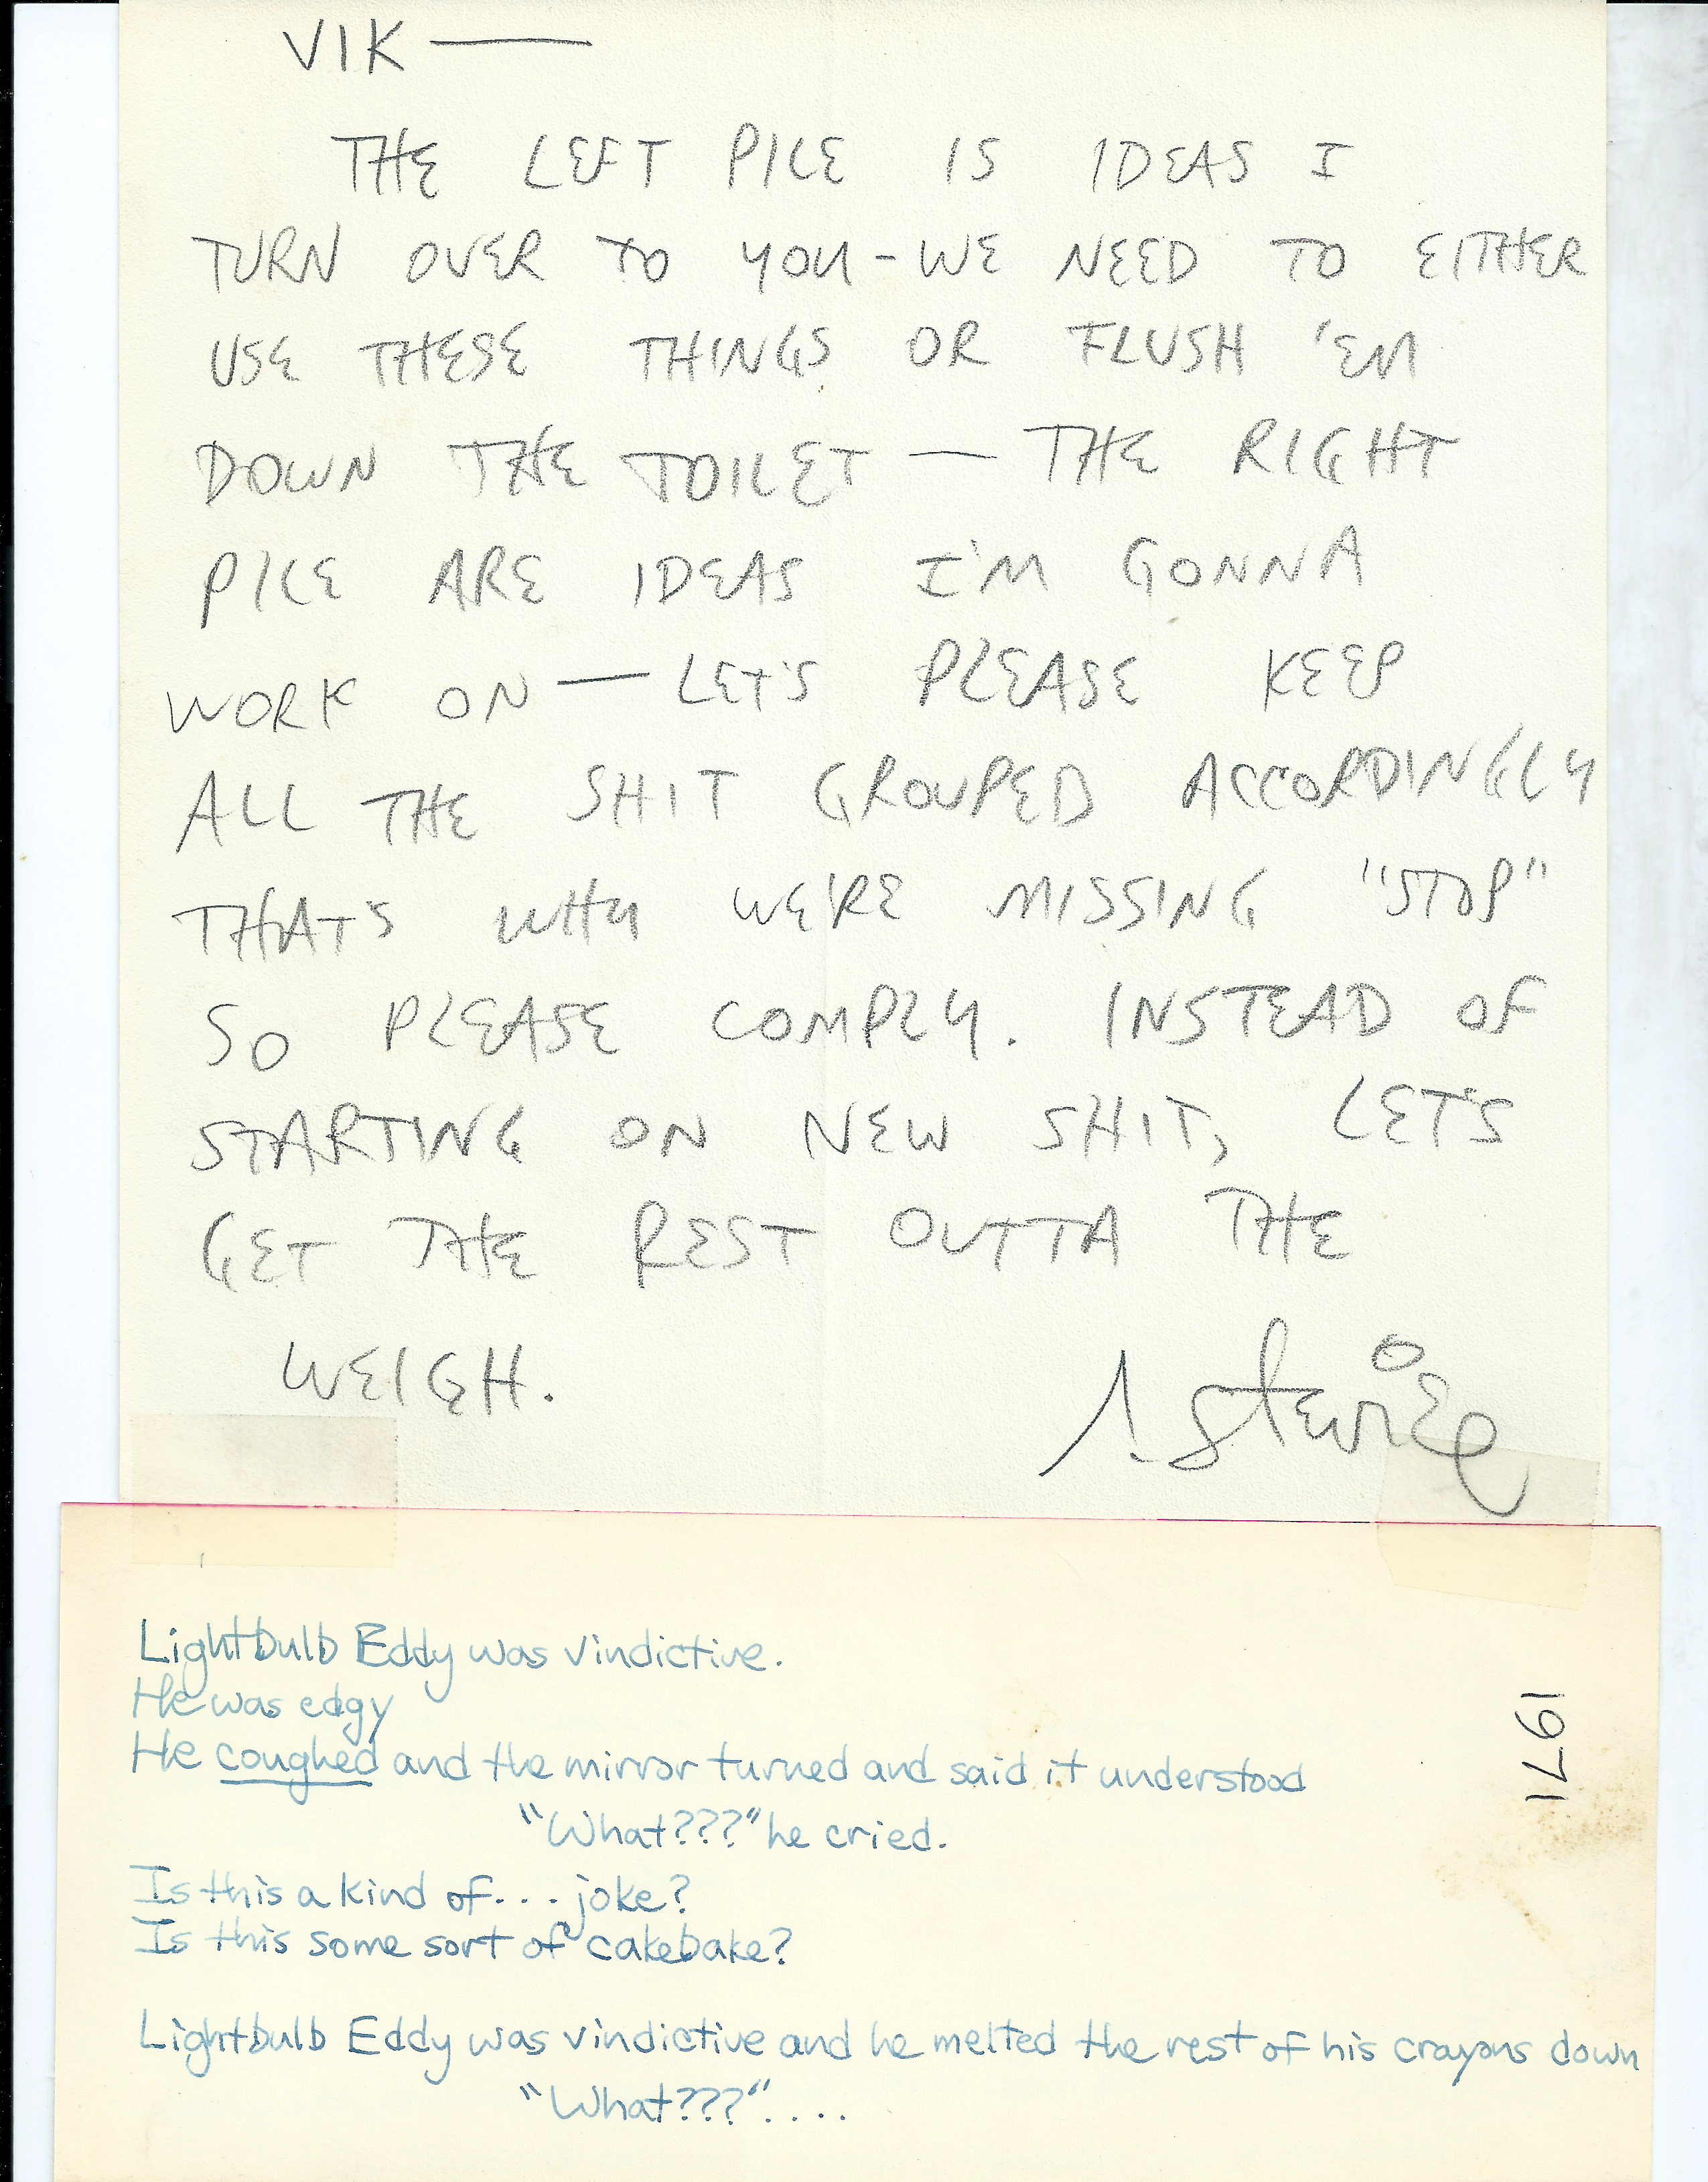 VIK —
THE LEFT PILE IS IDEAS I
TURN OVER TO YOU - WE NEED TO EITHER
USE THESE THINGS OR FLUSH 'EM
DOWN THE TOILET — THE RIGHT
PILE ARE IDEAS I'M GONNA
WORK ON — LET'S PLEASE KEEP
ALL THE SHIT GROUPED ACCORDINGLY
THAT'S WHY WE'RE MISSING "STOP"
SO PLEASE COMPLY. INSTEAD OF
STARTING ON NEW SHIT, LET'S
GET THE REST OUTTA THE
WEIGH.
Stevie
Lightbulb Eddy was vindictive.
He was edgy
He coughed and the mirror turned and said it understood
"What???" he cried.
Is this a kind of... joke?
Is this some sort of cakebake?
Lightbulb Eddy was vindictive and he melted the rest of his crayons down
"What???"....
1971